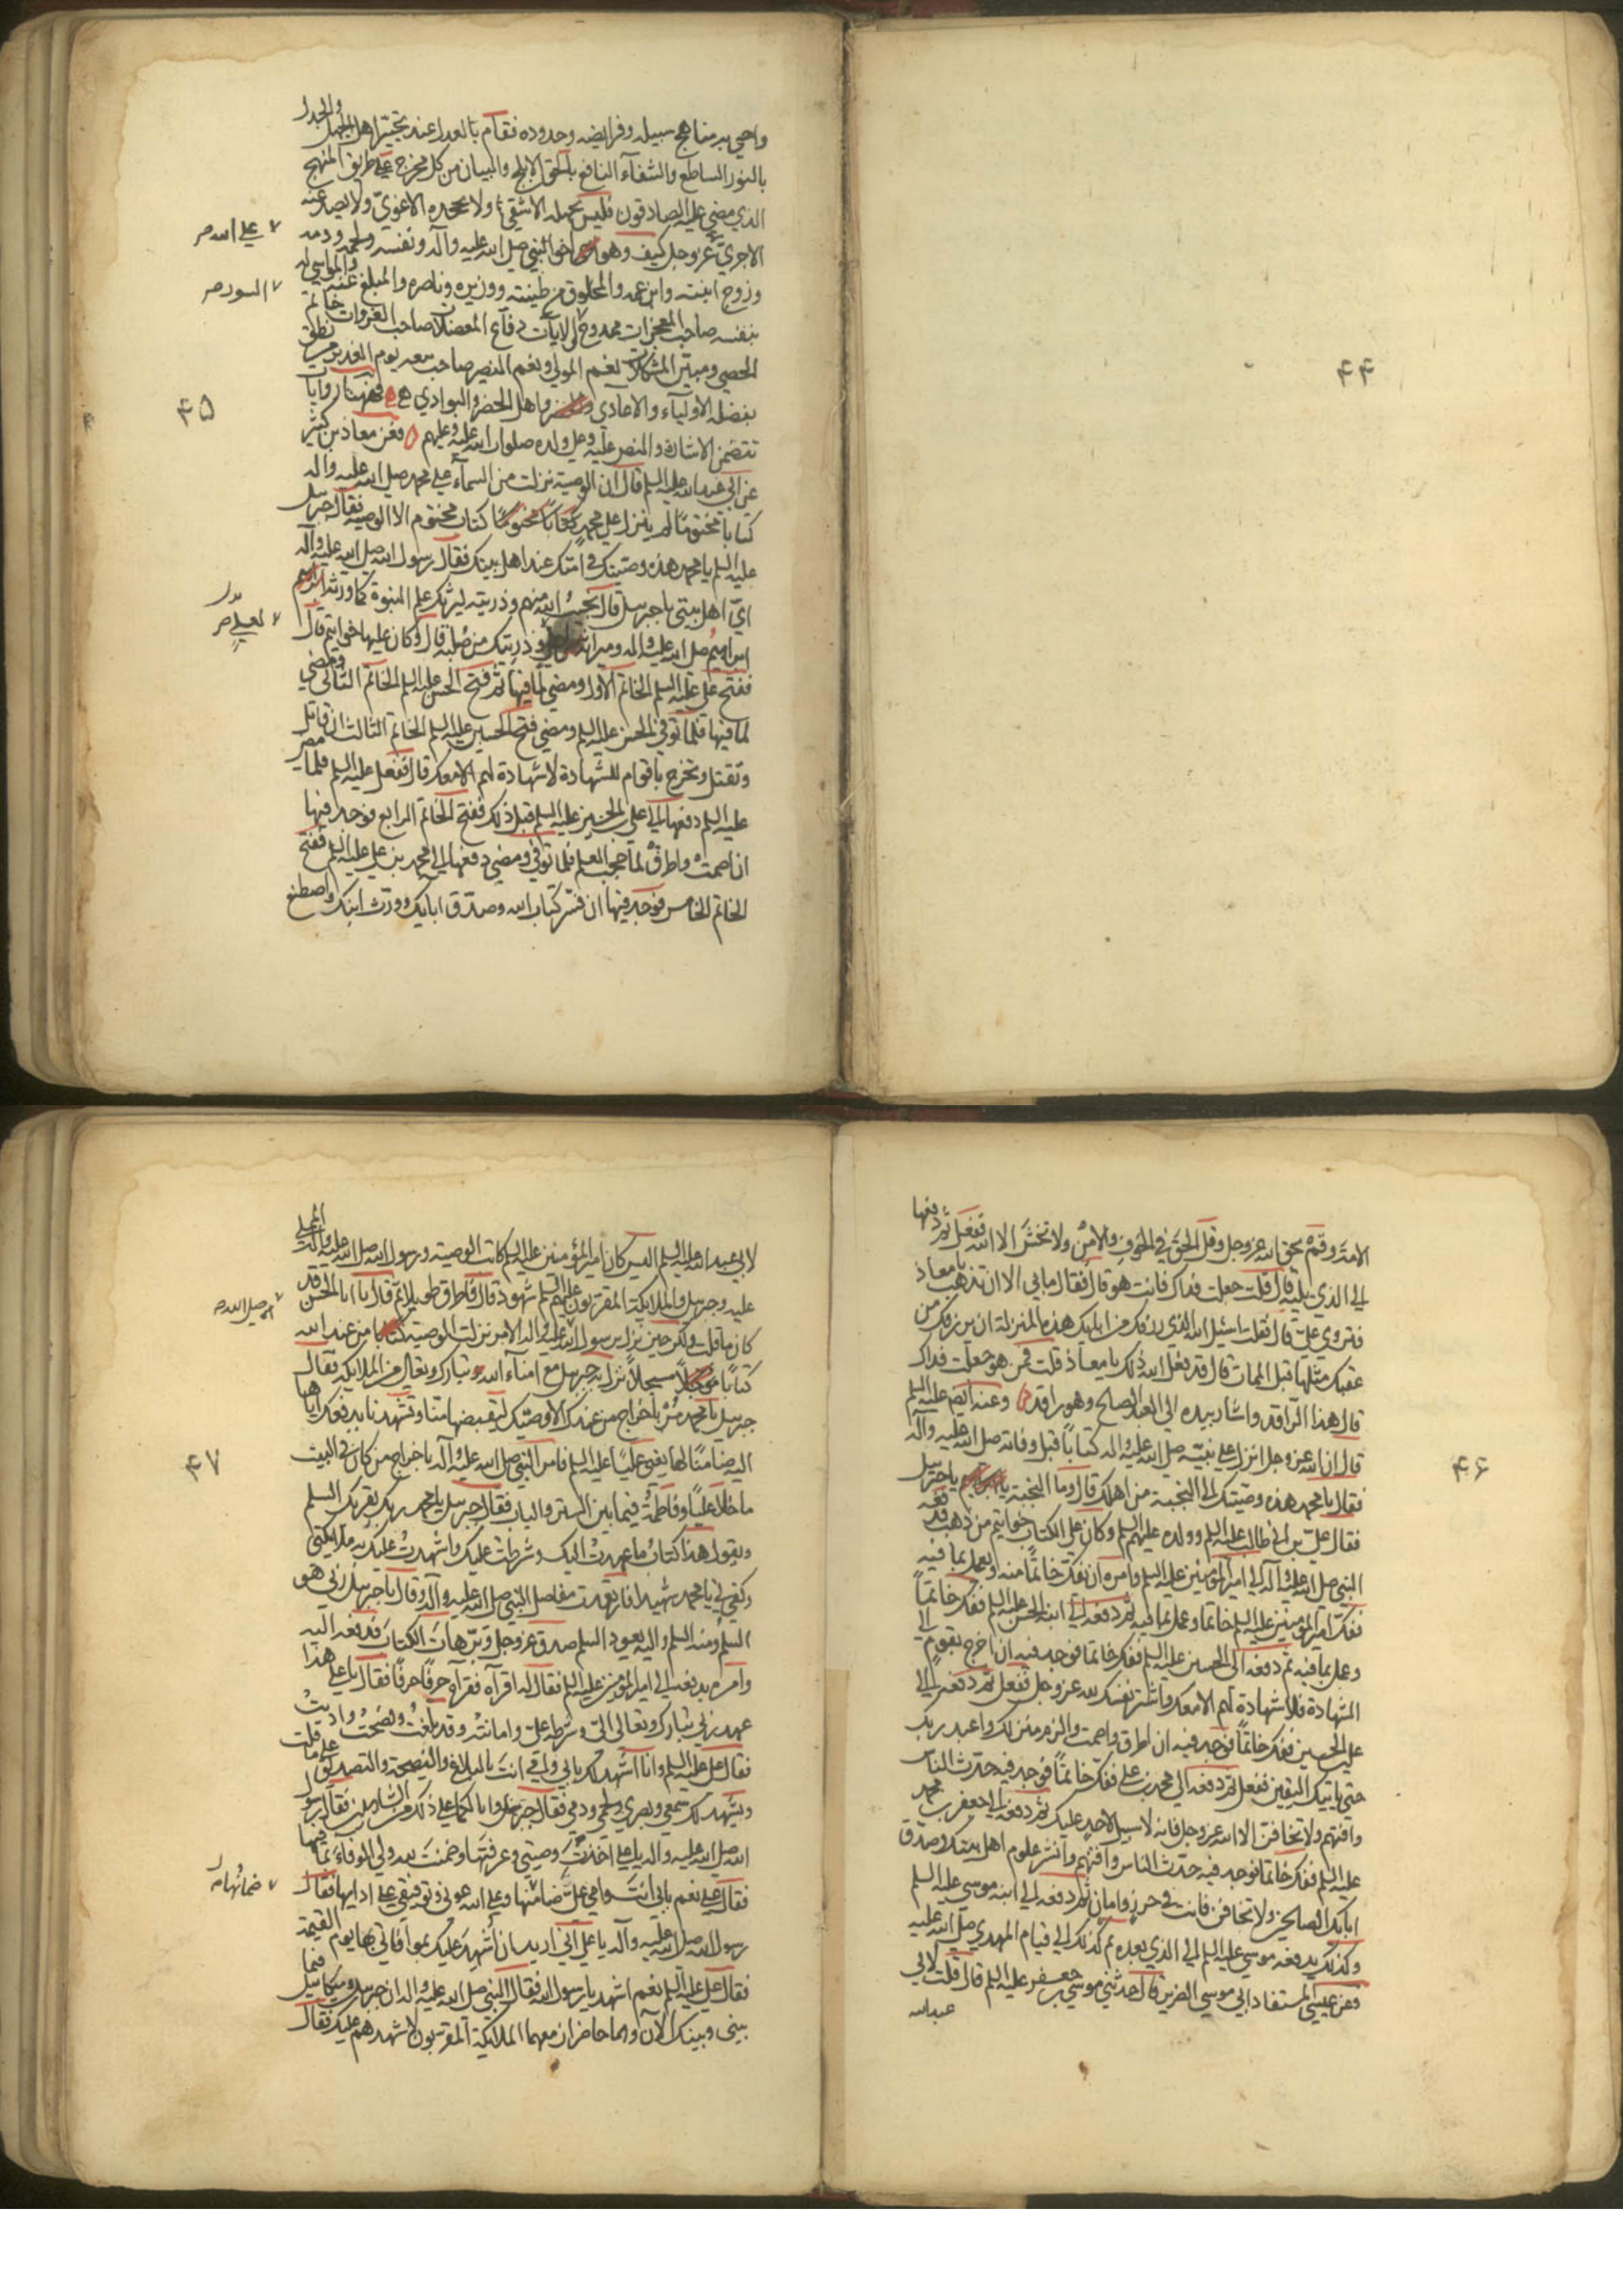 ۴۴
والجدل
واحيى به مناهج سبيله وفرايضه وحدوده فقام بالعدل عند تحيّر اهل الجهل
بالنور الساطع والشفآء النافع بالحق الابلج والبيان من كل مخرج على طريق المنهج
الذي مضى عليه الصادقون فليس يجهله الا شقيّ ولا يجحده الا غويّ ولا يصد عنه
الا جريّ عز وجل كيف وهو اخو النبي صلى الله عليه وآله ونفسه ولحمه ودمه
على الله صر
وزوج ابنته وابن عمه والمخلوق من طينته ووزيره وناصره والمبلغ عنه والمواسي له
السور صر
بنفسه صاحب المعجزات ممدوح الايات دفاع المعضلات صاحب الغزوات خاتم
الحصى ومبين المشكلات نعم المولى ونعم النصير صاحب يوم الغدير نطق
بفضله الاولياء والاعادي واهل الحضر والبوادي فههنا روايات
۴۵
تتضمن الاشارة والنص عليه وعلى ولده صلوات الله عليه وعليهم فعن معاذ بن كثير
عن ابي عبد الله عليه السلم قال ان الوصية نزلت من السماء على محمد صلى الله عليه واله
كتابا مختوما لم ينزل على محمد كتابا مختوما كتاب مختوم الا الوصية فقال جبرئيل
عليه السلم يا محمد هذه وصيتك في امتك عند اهل بيتك فقال رسول الله صلى الله عليه وآله
ايّ اهل بيتي يا جبرئيل قال نجيب الله منهم وذريته ليرثك علم النبوة كما ورثه ابرهيم
ابراهيم صلى الله عليه واله وميراثه وذريتك من صلبه قال وكان عليها خواتيم قال
لعلي صر
ففتح علي عليه السلم الخاتم الاول ومضى لما فيها ثم فتح الحسن عليه السلم الخاتم الثاني ومضى
لما فيها فلما توفي الحسن عليه السلم ومضى فتح الحسين عليه السلم الخاتم الثالث ان قاتل
وتقتل وتخرج باقوام للشهادة لا شهادة لهم الا معك قال ففعل عليه السلم فلما مضى
عليه السلم دفعها الى علي بن الحسين عليه السلم قبل ذلك ففتح الخاتم الرابع فوجد فيها
ان اصمت واطرق لما حجب العلم فلما توفي ومضى دفعها الى محمد بن علي عليه السلم ففتح
الخاتم الخامس فوجد فيها ان فسر كتاب الله وصدّق اباك وورّث ابنك واصطنع
الامة وقم بحق الله عز وجل وقل الحق في الخوف والامن ولا تخش الا الله ففعل ثم دفعها
الى الذي يليه قال قلت جعلت فداك فانت هو قال فقال ما بي الا ان تذهب يا معاذ
فتروي عليّ قال فقلت اسئل الله الذي رزقك من ابائك هذه المنزلة ان يرزقك من
عقبك مثلها قبل الممات قال قد فعل الله ذلك يا معاذ قلت فمن هو جعلت فداك
قال هذا الراقد واشار بيده الى العبد الصالح وهو راقد وعنه ايضا عليه السلم
قال ان الله عز وجل انزل على نبيه صلى الله عليه واله كتابا قبل وفاته صلى الله عليه وآله
۴۶
فقال يا محمد هذه وصيتك الى النجبة من اهلك قال وما النجبة يا جبرئيل
فقال علي بن ابي طالب عليه السلم وولده عليهم السلم وكان على الكتاب خواتيم من ذهب فدفعه
النبي صلى الله عليه وآله الى امير المؤمنين عليه السلم وامره ان يفك خاتما منه ويعمل بما فيه
ففك امير المؤمنين عليه السلم خاتما وعمل بما فيه ثم دفعه الى ابنه الحسن عليه السلم ففك خاتما
وعمل بما فيه ثم دفعه الى الحسين عليه السلم ففك خاتما فوجد فيه ان اخرج بقوم الى
الشهادة فلا شهادة لهم الا معك واشتر نفسك لله عز وجل ففعل ثم دفعه الى
علي بن الحسين ففك خاتما فوجد فيه ان اطرق واصمت والزم منزلك واعبد ربك
حتى ياتيك اليقين ففعل ثم دفعه الى محمد بن علي ففك خاتما فوجد فيه حدث الناس
وافتهم ولا تخافن الا الله عز وجل فانه لا سبيل لاحد عليك ثم دفعه الى جعفر بن محمد
عليه السلم ففك خاتما فوجد فيه حدّث الناس وافتهم وانشر علوم اهل بيتك وصدق
ابائك الصالحين ولا تخافن فانت في حرز وامان ثم دفعه الى ابنه موسى عليه السلم
وكذلك يدفعه موسى عليه السلم الى الذي بعده ثم كذلك الى قيام المهدي صلى الله عليه
وعن عيسى المستفاد ابي موسى الضرير قال حدثني موسى بن جعفر عليه السلم قال قلت لابي
عبد الله
لابي عبد الله عليه السلم اليس كان امير المؤمنين عليه السلم كاتب الوصية ورسول الله صلى الله عليه وآله المملي
عليه وجبرئيل والملايكة المقربون عليهم السلم شهود قال فاطرق طويلا ثم قال يا ابا الحسن قد
كان ما قلت ولكن حين نزل برسول الله صلى الله عليه واله الامر نزلت الوصية من عند الله
كتابا مسجلا نزل به جبرئيل مع امناء الله تبارك وتعالى من الملايكة فقال
جبرئيل يا محمد مر باخراج من عندك الا وصيك ليقبضها منا وتشهدنا بدفعك اياها
اليه ضامنا لها يعني عليا عليه السلم فامر النبي صلى الله عليه وآله باخراج من كان في البيت
۴۷
ما خلا عليا وفاطمة فيما بين الستر والباب فقال جبرئيل يا محمد ربك يقرئك السلم
ويقول هذا كتاب ما عهدت اليك وشرطت عليك واشهدت عليك به ملايكتي
وكفى بي يا محمد شهيدا فارتعدت مفاصل النبي صلى الله عليه وآله وقال يا جبرئيل ربي هو
السلم ومنه السلم واليه يعود السلم صدق عز وجل وبرّ هات الكتاب فدفعه اليه
وامره بدفعه الى امير المؤمنين عليه السلم فقال له اقرأه فقرأه حرفا حرفا فقال يا علي هذا
عهد ربي تبارك وتعالى اليّ وشرطه عليّ وامانته وقد بلّغت ونصحت واديت
فقال علي عليه السلم وانا اشهد لك بابي وامي انت بالبلاغ والنصيحة والتصديق على ما قلت
ويشهد لك سمعي وبصري ولحمي ودمي فقال جبرئيل وانا لكما على ذلك من الشاهدين فقال رسول
الله صلى الله عليه واله يا علي اخذت وصيتي وعرفتها وضمنت لله ولي الوفاء بما فيها
فقال علي نعم بابي انت وامي عليّ ضمانها وعلى الله عوني وتوفيقي على ادائها فقال
ضمانها صر
رسول الله صلى الله عليه وآله يا علي اني اريد ان اشهد عليك بموافاتي بها يوم القيمة
فقال علي عليه السلم نعم اشهد يا رسول الله فقال النبي صلى الله عليه واله ان جبرئيل وميكائيل فيما
بيني وبينك الآن وهما حاضران معهما الملايكة المقربون لاشهدهم عليك فقال